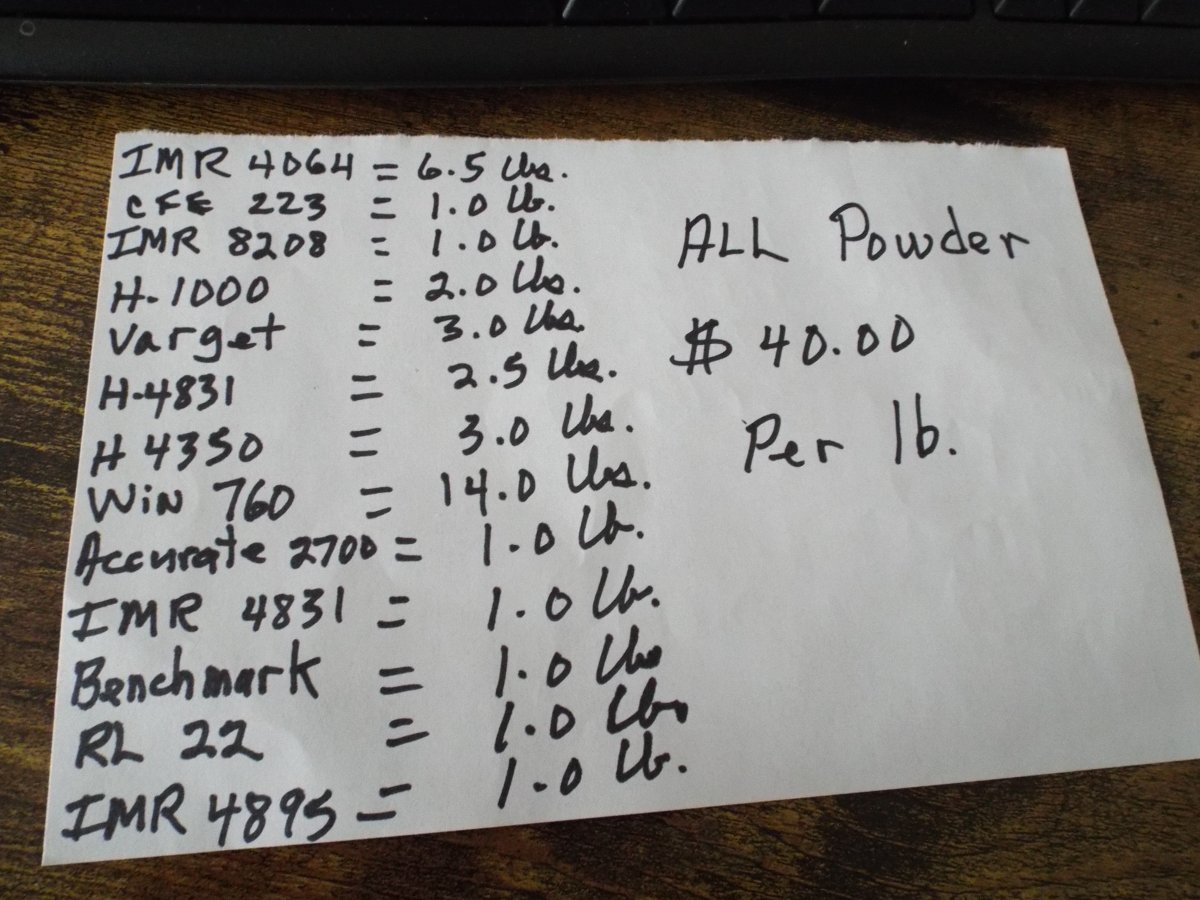 IMR 4064 = 6.5 lbs.
CFE 223 = 1.0 lb.
IMR 8208 = 1.0 lb.
H-1000 = 2.0 lbs.
Varget = 3.0 lbs.
H-4831 = 2.5 lbs.
H 4350 = 3.0 lbs.
WiN 760 = 14.0 lbs.
Accurate 2700 = 1.0 lb.
IMR 4831 = 1.0 lb.
Benchmark = 1.0 lbs
RL 22 = 1.0 lb.
IMR 4895 = 1.0 lb.
ALL Powder
$ 40.00
Per lb.